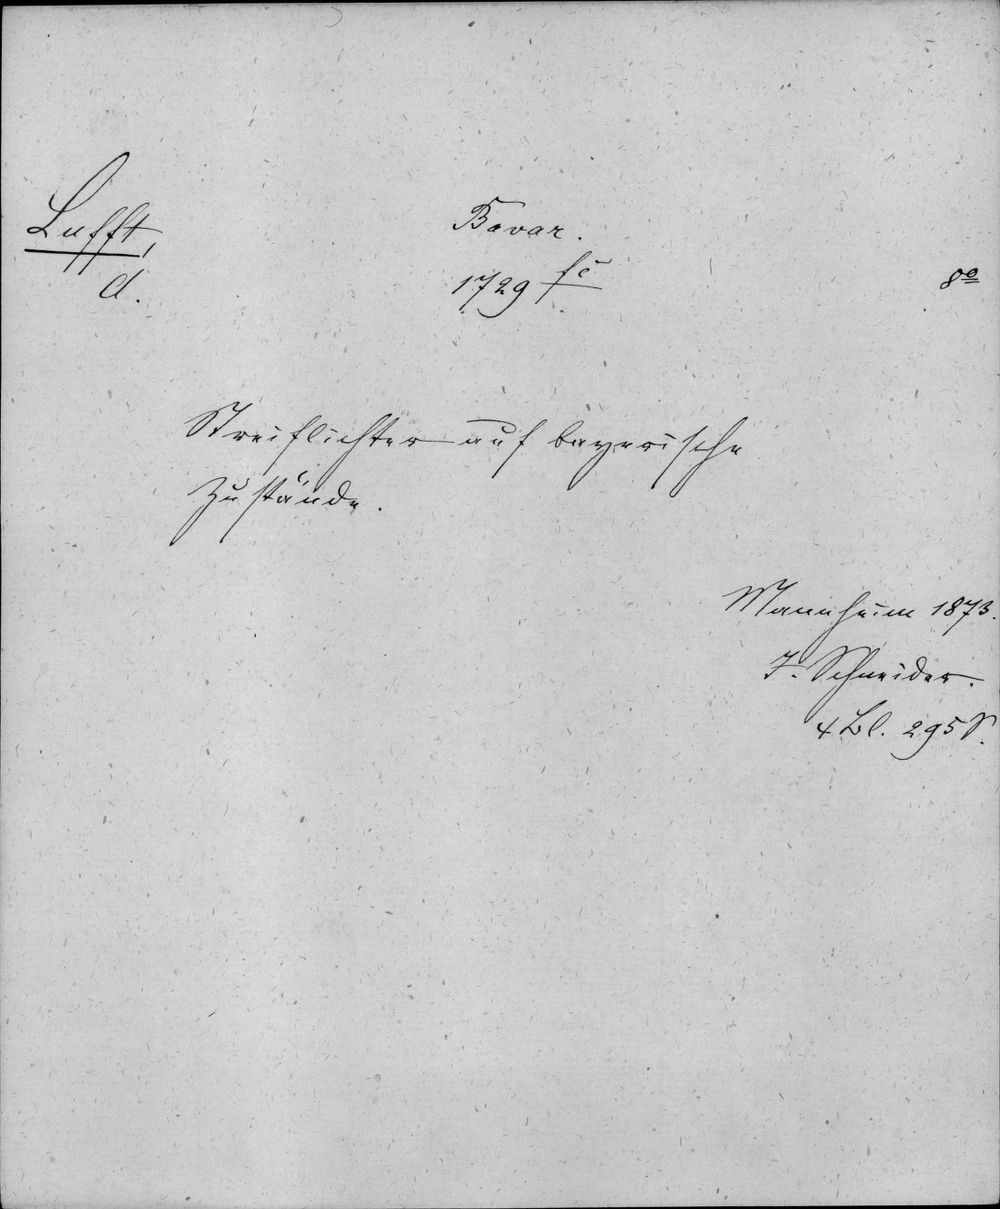 Lufft,
A.
Bavar.
1729 fc
8º
Streiflichter auf bayerische
Zustände.
Mannheim 1873.
J. Schneider.
4 Bl. 295 S.